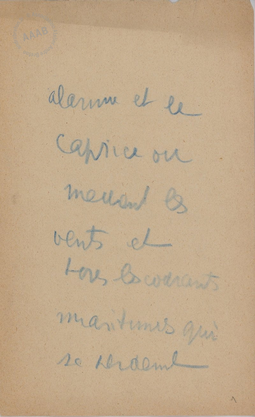 alarme et le
caprice où
menent les
vents et
tous les courants
maritimes qui
se perdent